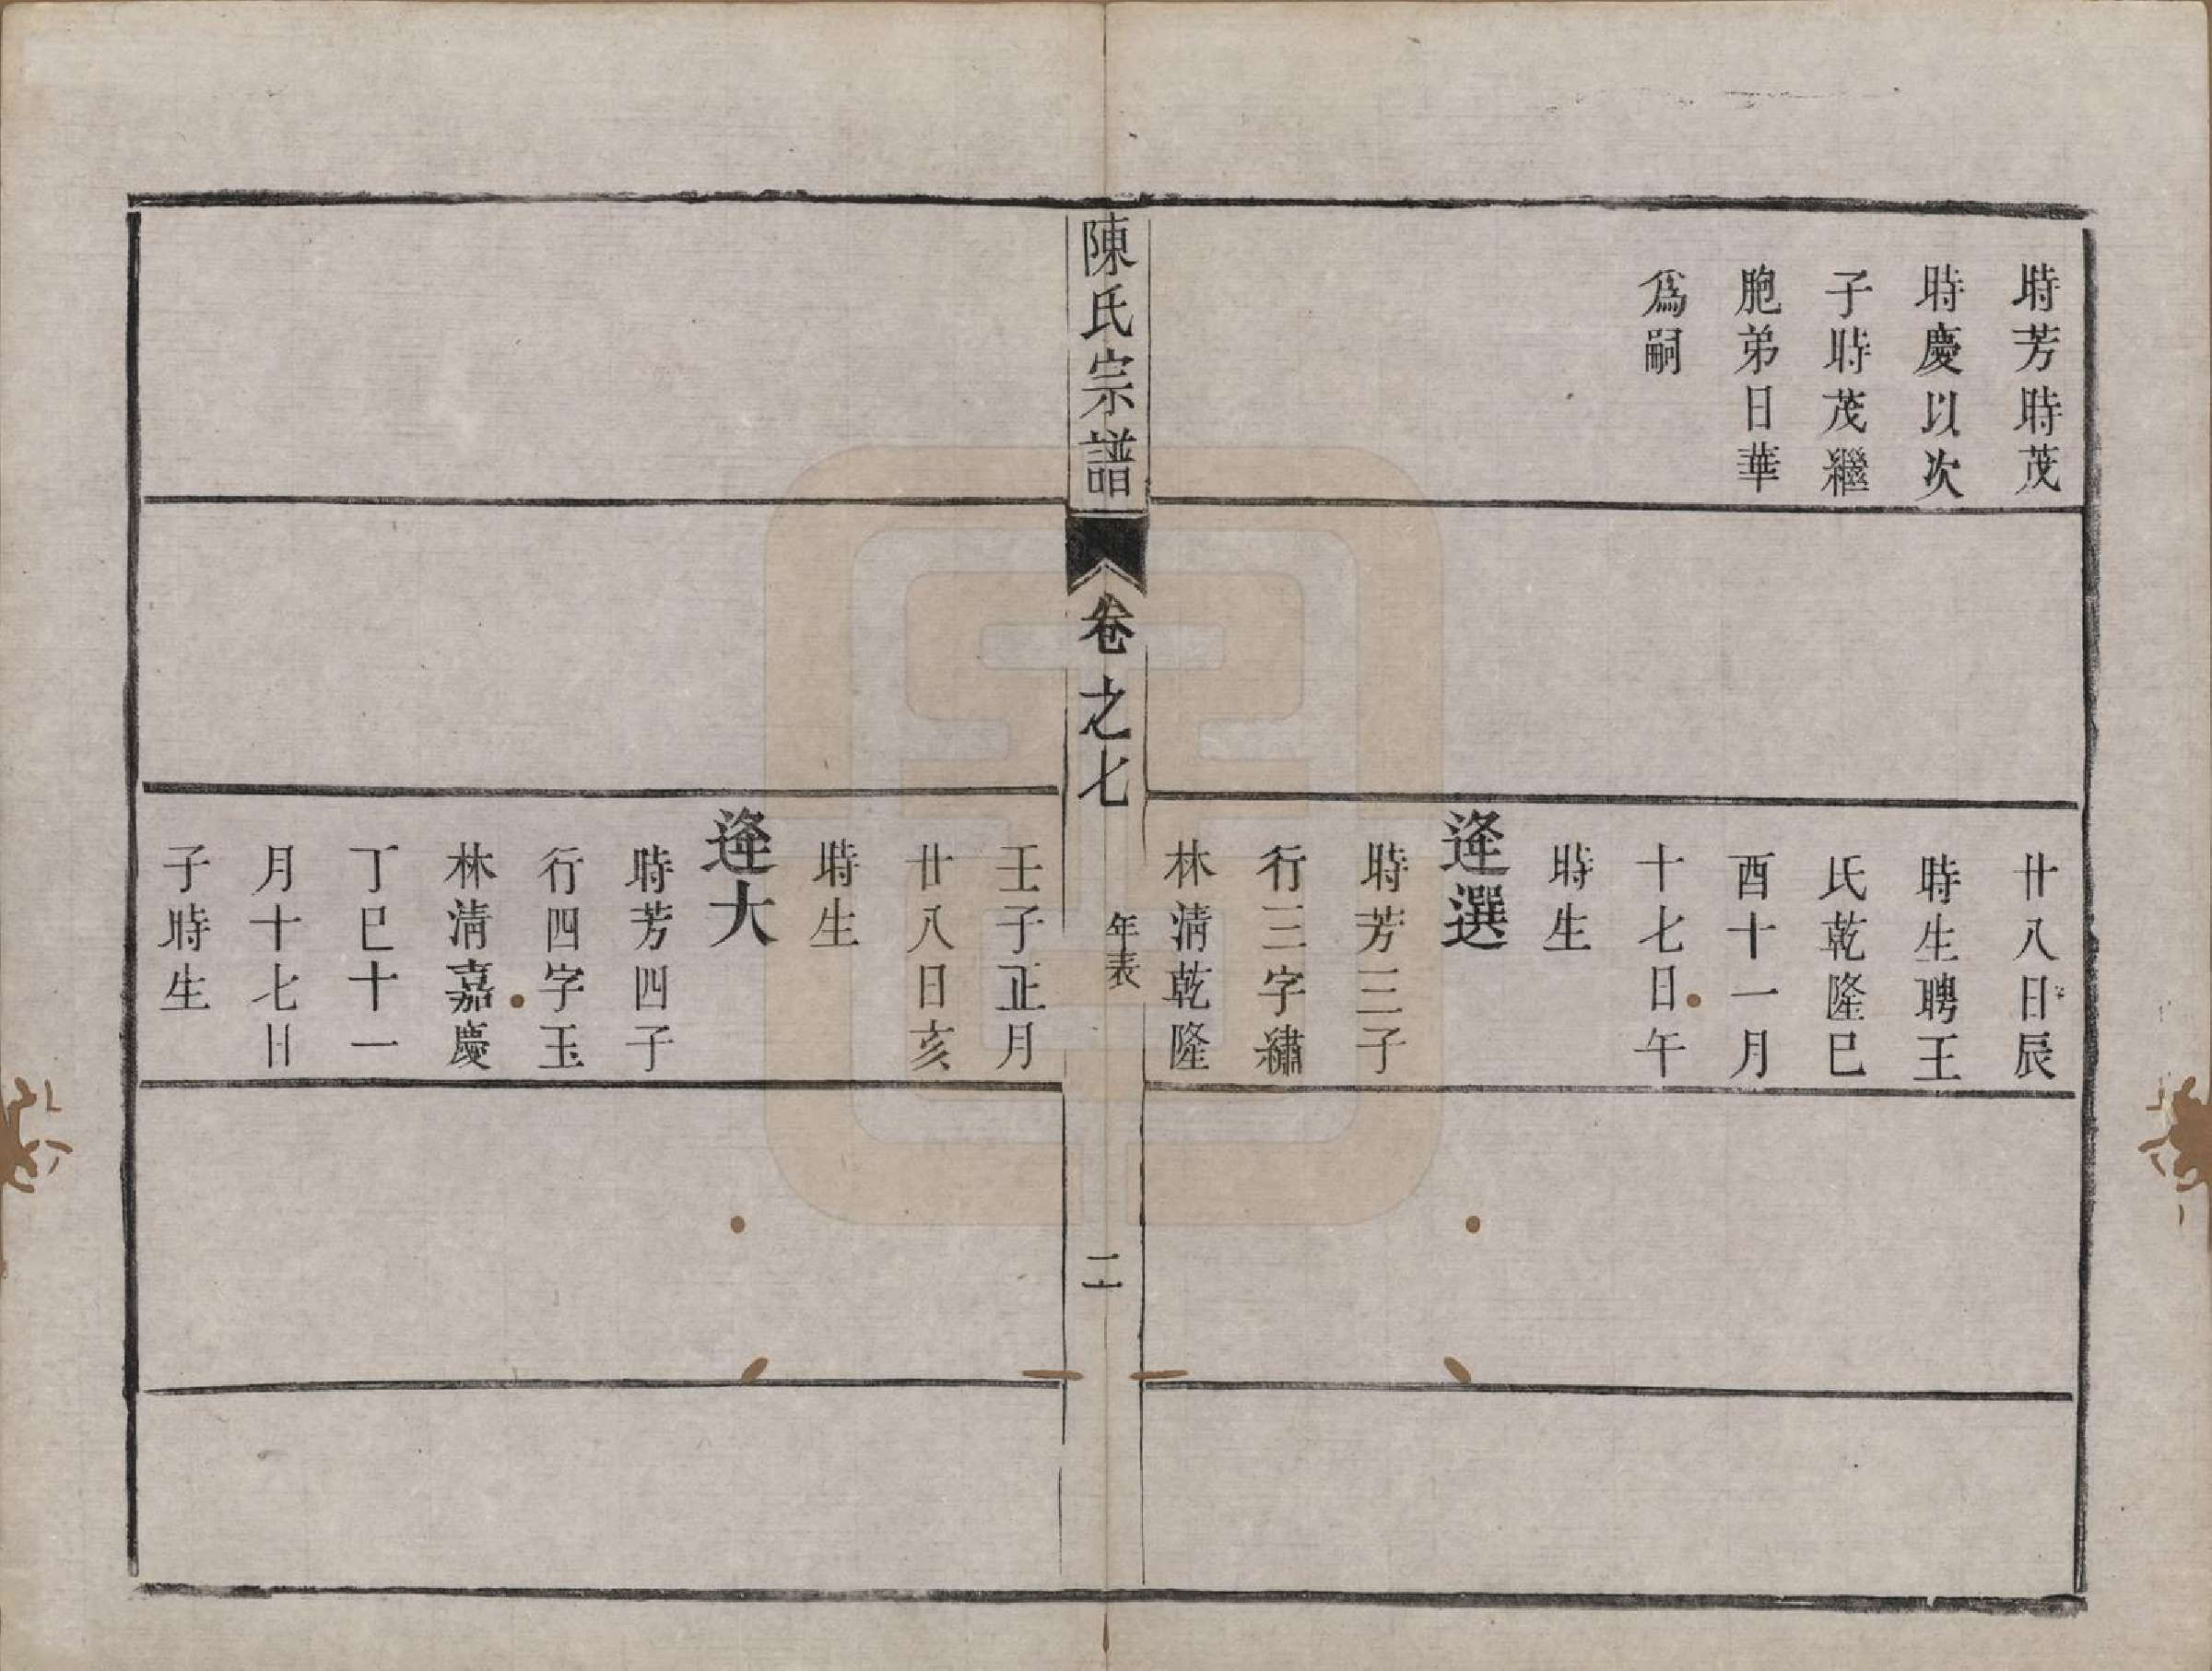 時芳時茂
時慶以次
子時茂繼
胞弟日華
爲嗣
廿八日辰
時生聘王
氏乾隆巳
酉十一月
十七日午
時生
逢選
時芳三子
行三字繡
林清乾隆
陳氏宗譜
卷之七
年表
二
壬子正月
廿八日亥
時生
逢大
時芳四子
行四字玉
林清嘉慶
丁巳十一
月十七日
子時生